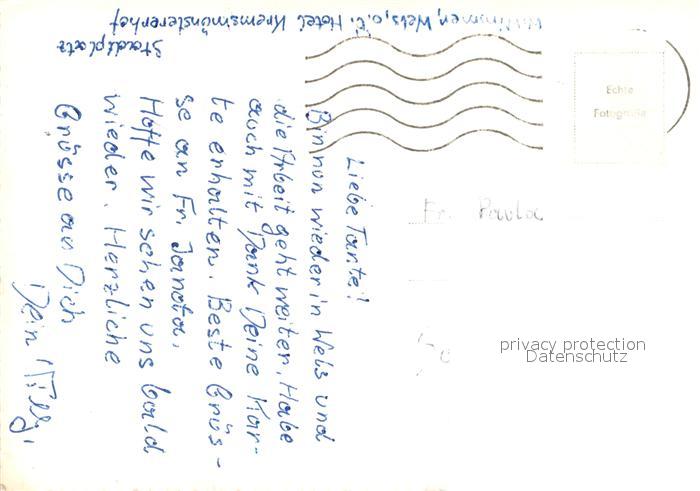 Wels, o.Ö. Hotel Kremsmünstererhof
Stadtplatz
Liebe Tante!
Bin nun wieder in Wels und
die Arbeit geht weiter. Habe
auch mit Dank Deine Kar-
te erhalten. Beste Grüs-
se an Fr. Janota.
Hoffe wir sehen uns bald
wieder. Herzliche
Grüsse an Dich
Dein Willy.
Echte
Fotografie
Fr. Paula
privacy protection
Datenschutz